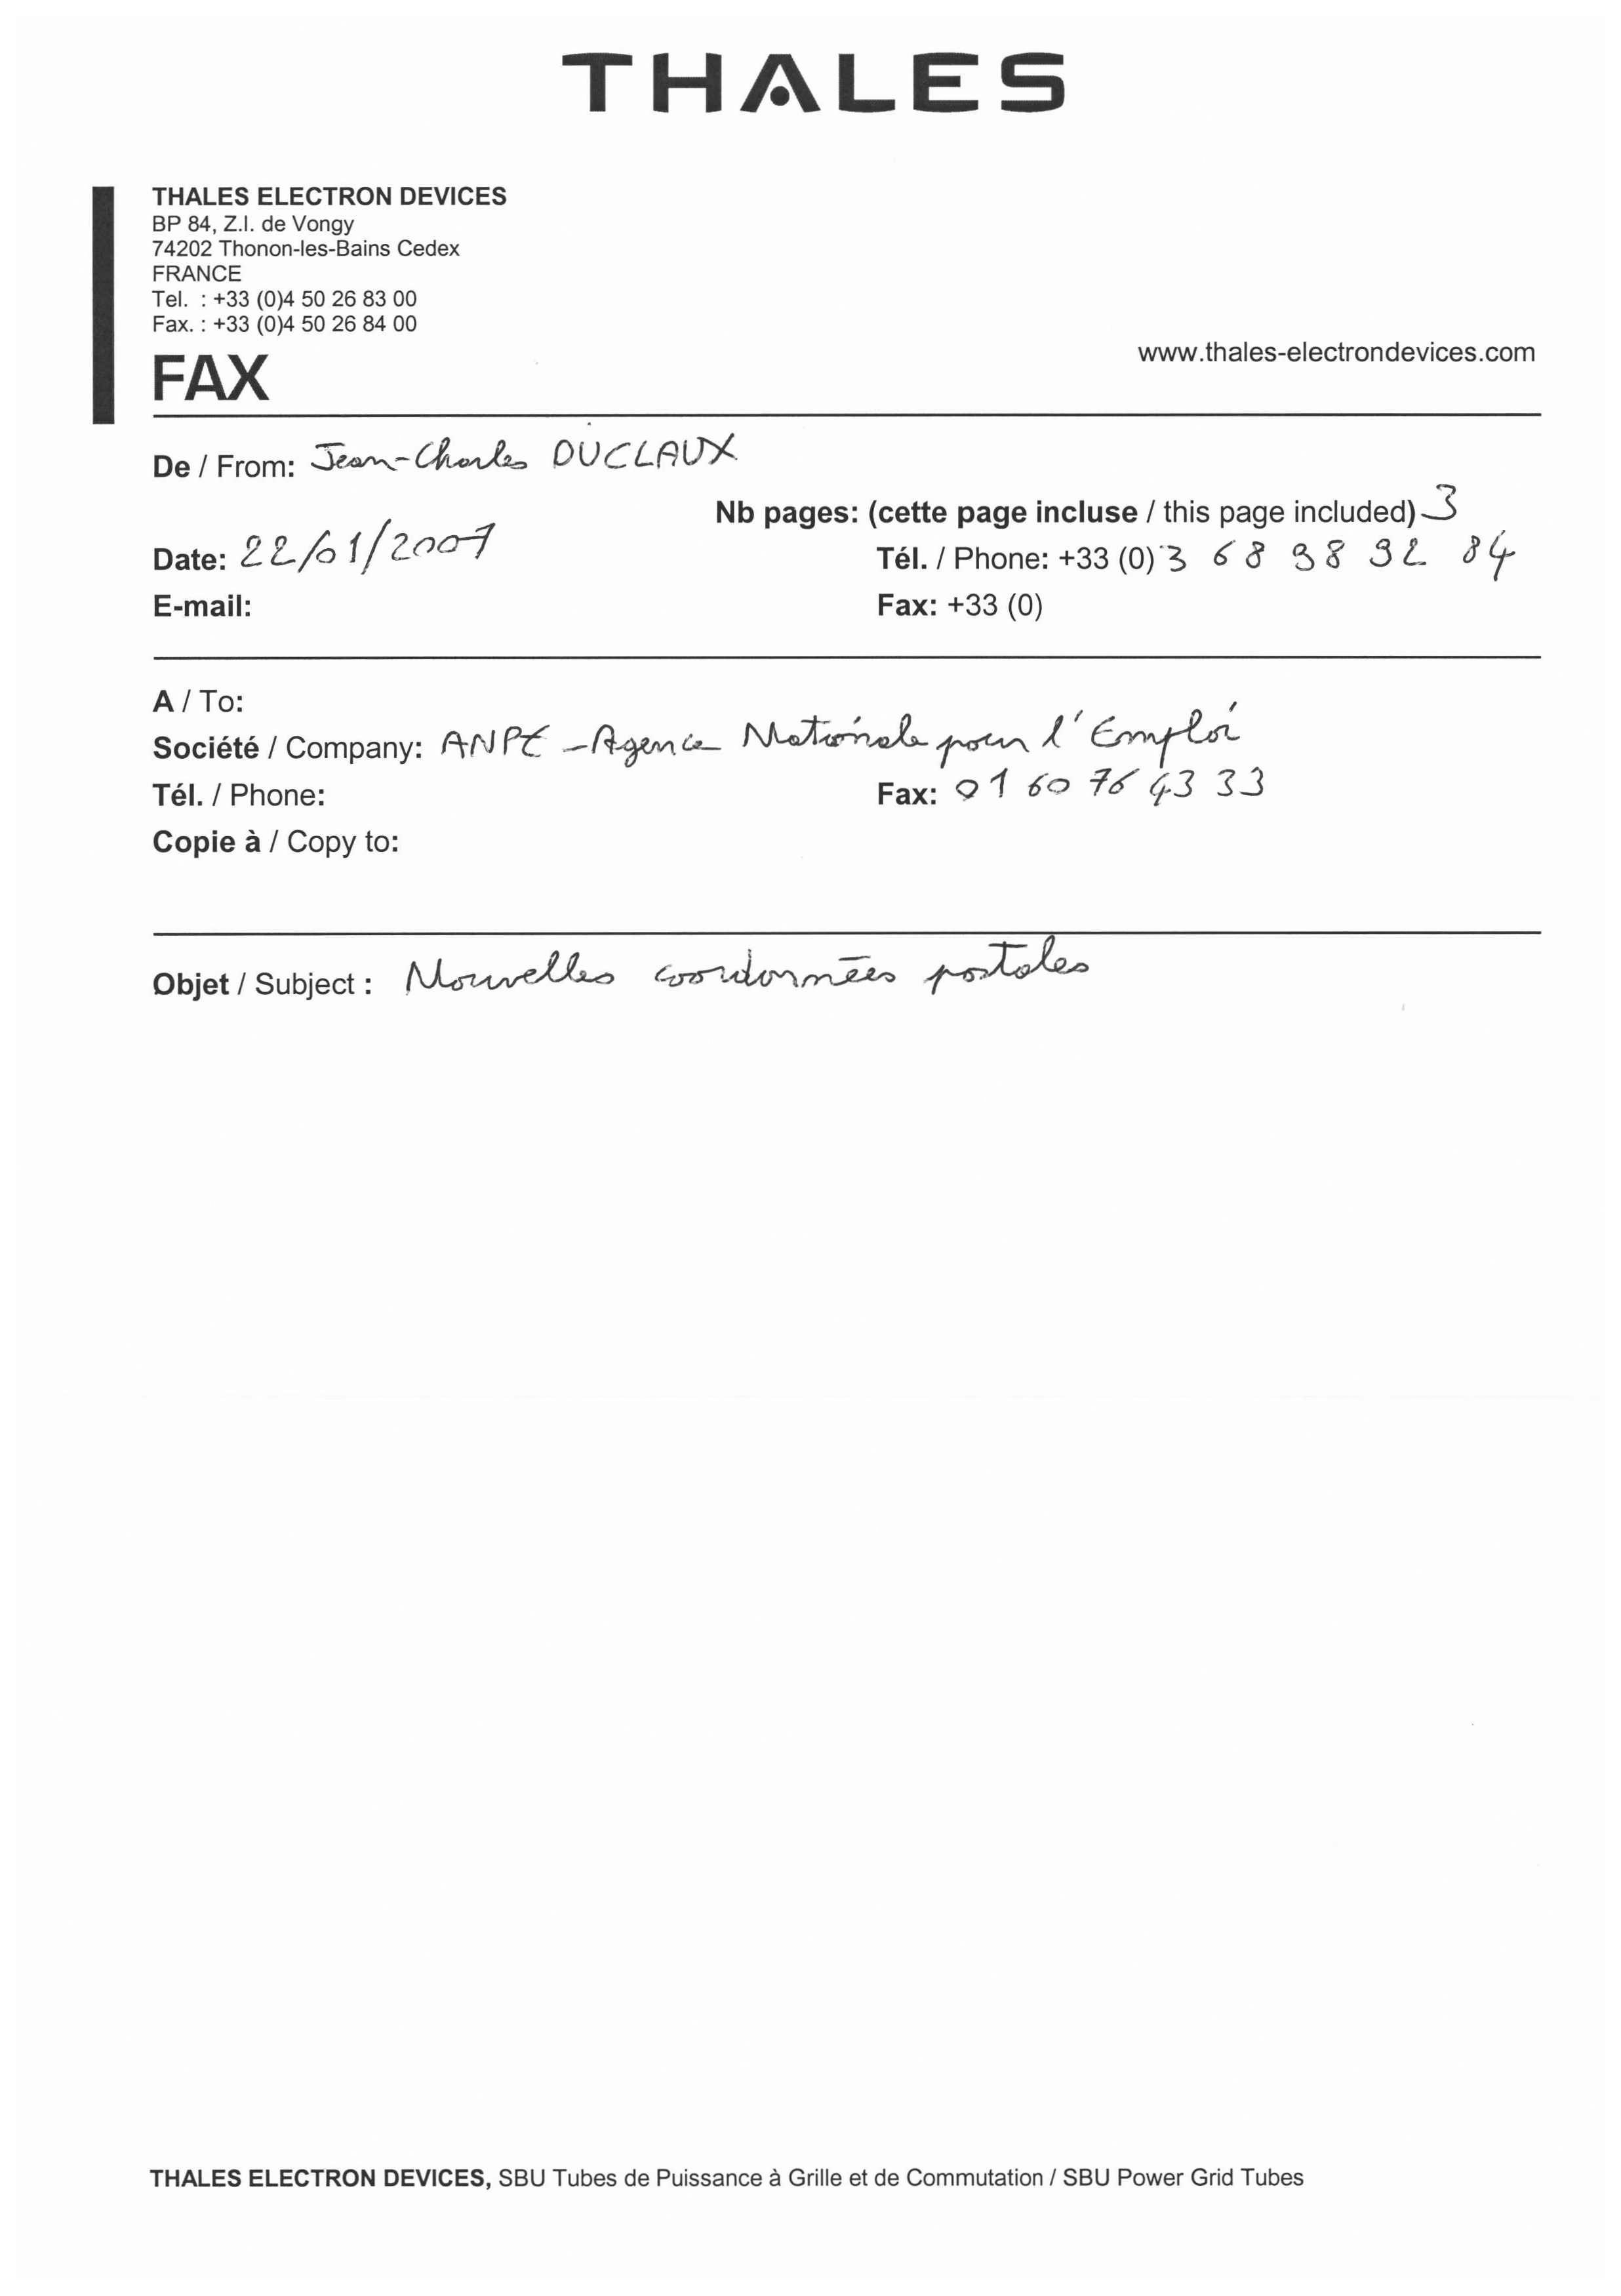 THALES
THALES ELECTRON DEVICES
BP 84, Z.I. de Vongy
74202 Thonon-les-Bains Cedex
FRANCE
Tel. : +33 (0)4 50 26 83 00
Fax. : +33 (0)4 50 26 84 00
www.thales-electrondevices.com
FAX
De / From: Jean-Charles DUCLAUX
Nb pages: (cette page incluse / this page included) 3
Date: 22/01/2007
Tél. / Phone: +33 (0) 3 68 98 92 84
E-mail:
Fax: +33 (0)
A / To:
Société / Company: ANPE - Agence Nationale pour l'Emploi
Tél. / Phone:
Fax: 01 60 76 43 33
Copie à / Copy to:
Objet / Subject : Nouvelles coordonnées postales
THALES ELECTRON DEVICES, SBU Tubes de Puissance à Grille et de Commutation / SBU Power Grid Tubes